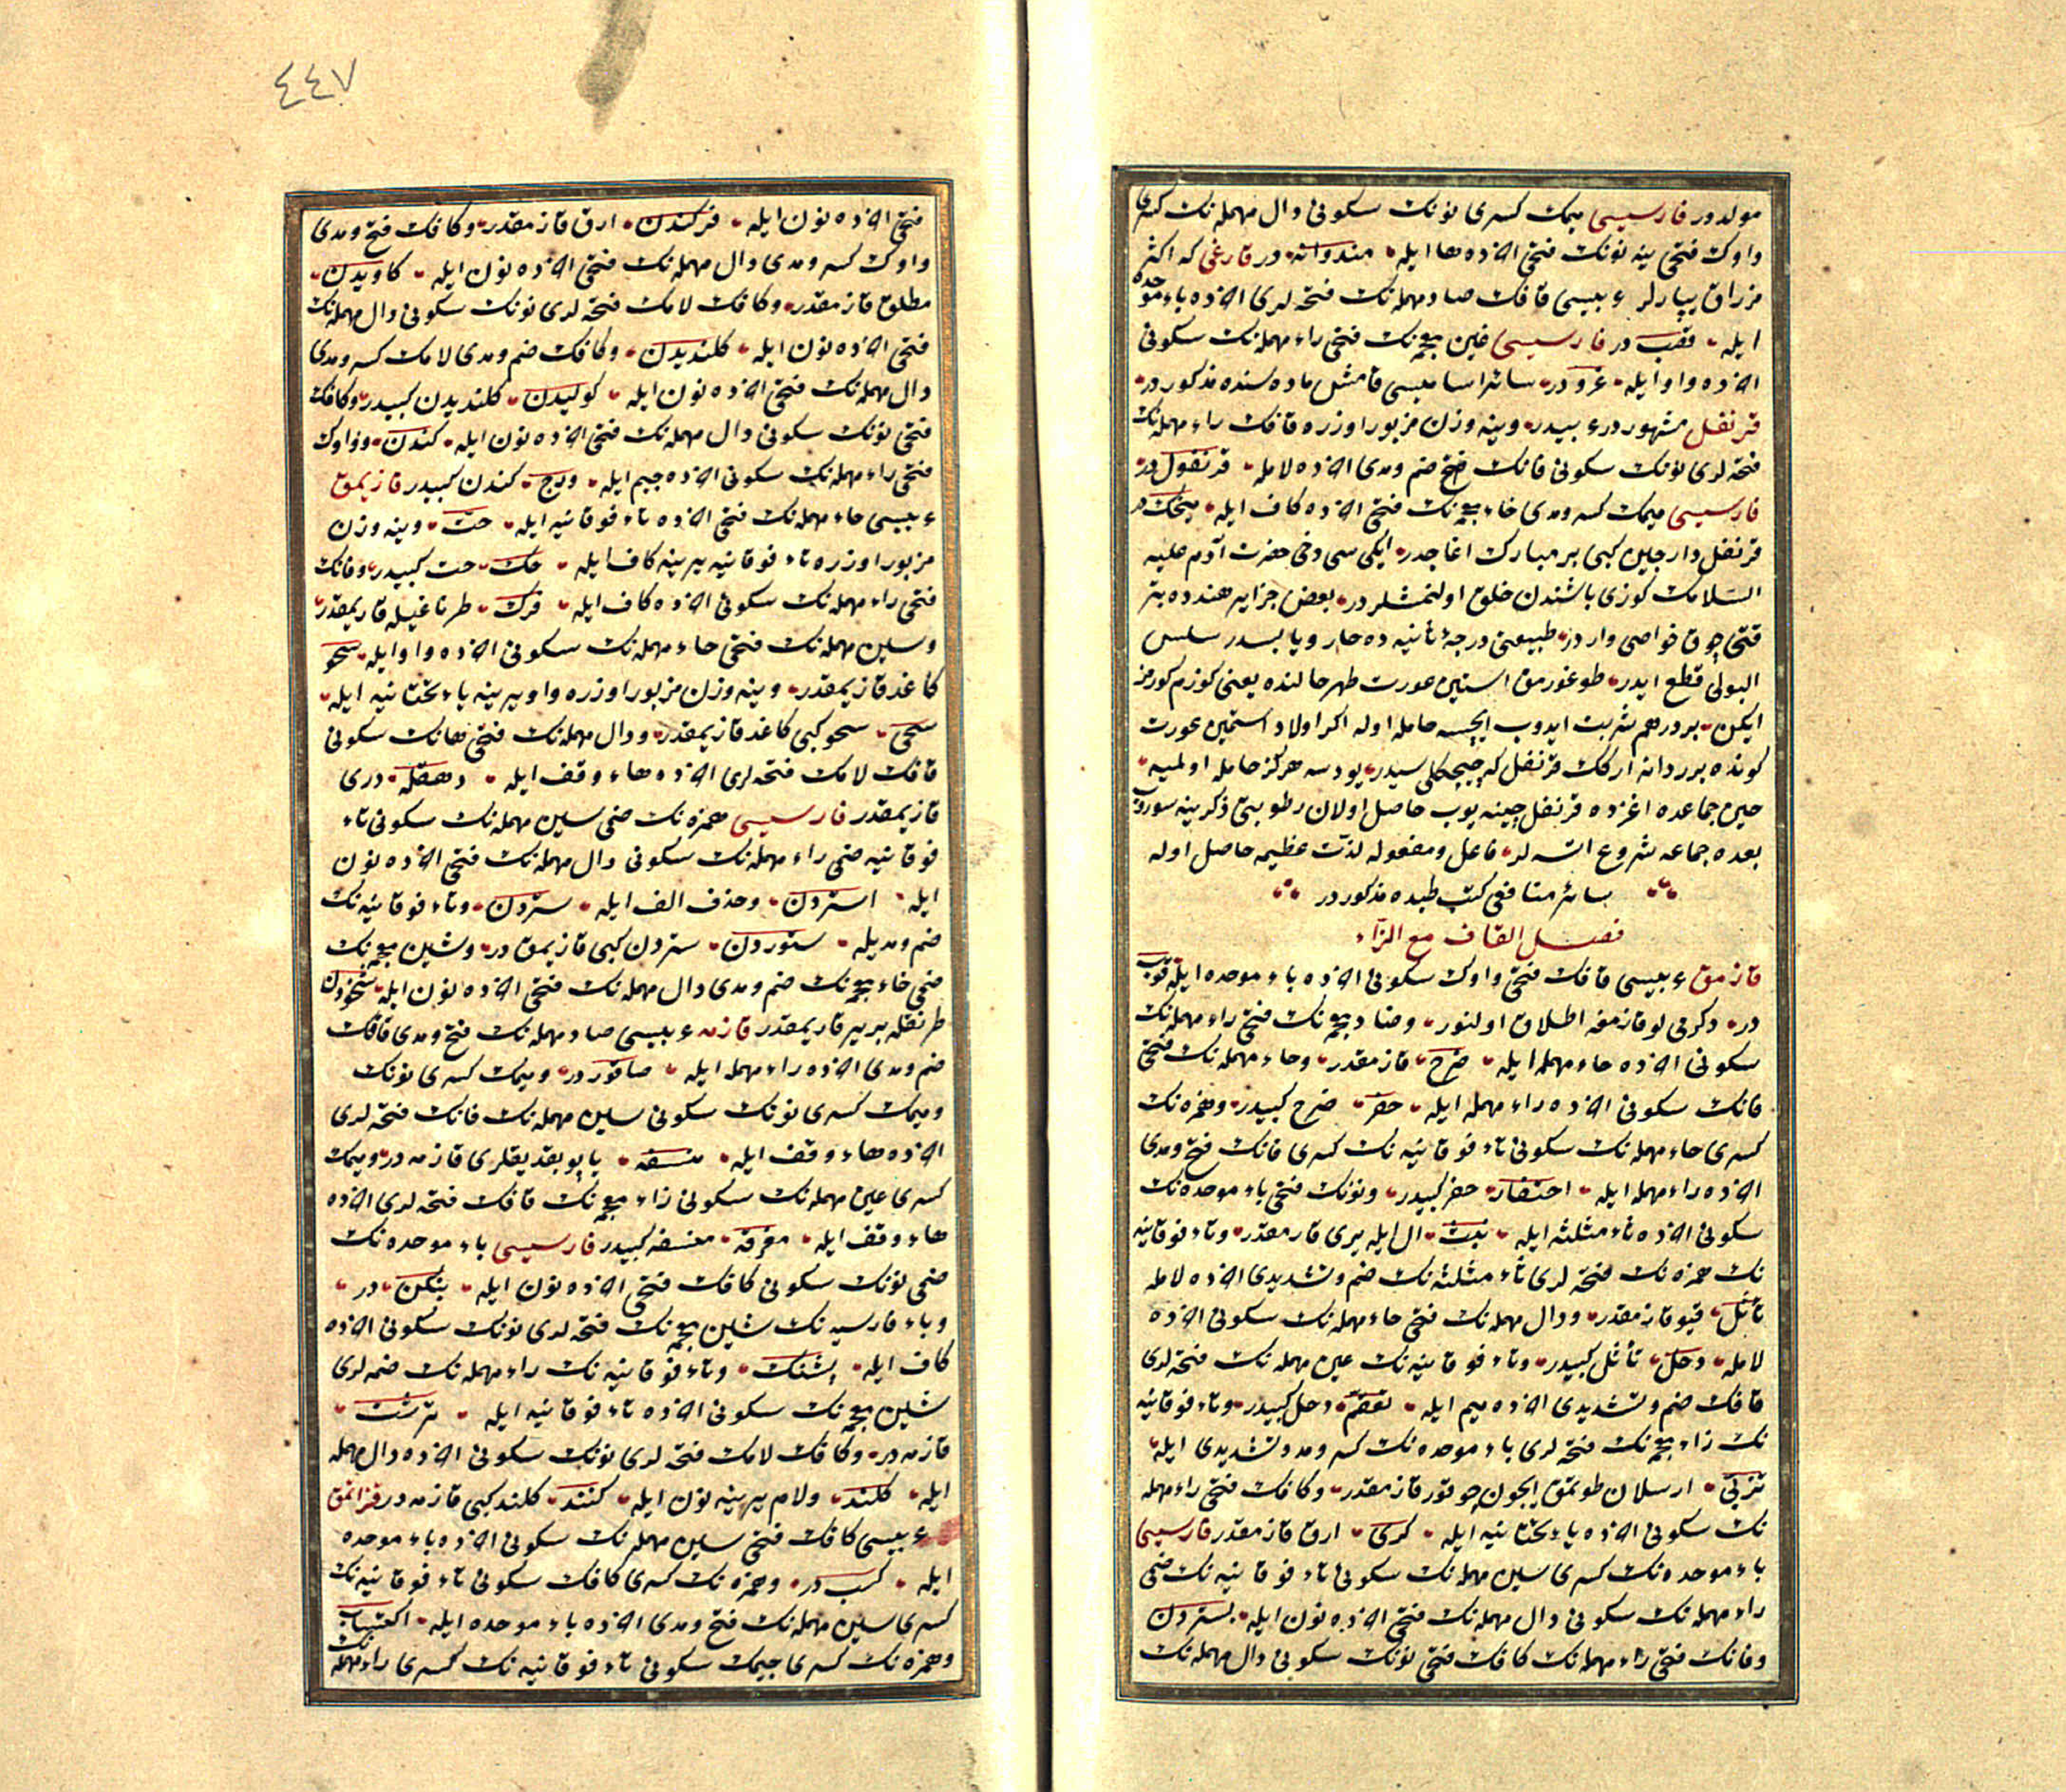 مولدور فارسیسی میمك كسری نونك سكونی دال مهمله نك كسری
واوك فتحی ینه نونك فتحی اخرده ها ایله مندوانه در قارغی كه اكثر
مزراق یپارلر عربیسی قافك صاد مهمله نك فتحه لری اخرده باء موحده
ایله قصب در فارسیسی غین معجمه نك فتحی راء مهمله نك سكونی
اخرده واو ایله غرو در سائر اسامیسی قامش ماده سنده مذكوردر
قرنفل مشهوردر عربیدر وینه وزن مزبور اوزره قافك راء مهمله نك
فتحه لری نونك سكونی فانك ضم ومدی اخرده لامله قرنفول در
فارسیسی میمك كسر ومدی خاء معجمه نك فتحی اخرده كاف ایله میخك در
قرنفل دارچین كبی بر مبارك اغاجدر ایكی سی دخی حضرت آدم علیه
السلامك كوزی یاشندن خلق اولنمشلردر بعض جزایر هندده بتر
قتی چوق خواصی واردر طبیعتی درجۀ ثانیه ده حار ویابسدر سلس
البولی قطع ایدر طوغورمق استین عورت طهر حالنده یعنی كوزم كورمز
ایكن بر درهم شربت ایدوب ایچسه حامله اوله اكر اولاد استمین عورت
كونده برر دانه اركك قرنفل كه چیچكلی سیدر یودسه هركز حامله اولمیه
حین جماعده اغزده قرنفل چینه یوب حاصل اولان رطوبتی ذكرینه سوروب
بعده جماعه شروع اتسه لر فاعل ومفعوله لذت عظیمه حاصل اوله
سائر منافعی كتب طبده مذكوردر
فصل القاف مع الزاء
قازمق عربیسی قافك فتحی واوك سكونی اخرده باء موحده ایله قوب
در دكرمی لو قازمغه اطلاق اولنور وضاد معجمه نك فتحی راء مهمله نك
سكونی اخرده حاء مهمله ایله ضرح قازمقدر وحاء مهمله نك فتحی
فانك سكونی اخرده راء مهمله ایله حفر ضرح كبیدر وهمزه نك
كسری حاء مهمله نك سكونی تاء فوقانیه نك كسری فانك فتح ومدی
اخرده راء مهمله ایله احتفار حفر كبیدر ونونك فتحی باء موحده نك
سكونی اخرده ثاء مثلثه ایله نبث ال ایله یری قازمقدر وتاء فوقانیه
نك همزه نك فتحه لری ثاء مثلثه نك ضم وتشدیدی اخرده لامله
تأثل قیو قازمقدر ودال مهمله نك فتحی حاء مهمله نك سكونی اخرده
لامله دحل تأثل كبیدر وتاء فوقانیه نك عین مهمله نك فتحه لری
قافك ضم وتشدیدی اخرده میم ایله تعقم دحل كبیدر وتاء فوقانیه
نك زاء معجمه نك فتحه لری باء موحده نك كسر ومد وتشدیدی ایله
تزبی ارسلان طوتمق ایچون چوقور قازمقدر وكافك فتحی راء مهمله
نك سكونی اخرده یاء تحتانیه ایله كری ارق قازمقدر فارسیسی
باء موحده نك كسری سین مهمله نك سكونی تاء فوقانیه نك ضمی
راء مهمله نك سكونی دال مهمله نك فتحی اخرده نون ایله بستردن
وفانك فتحی راء مهمله نك كافك فتحی نونك سكونی دال مهمله نك
٤٤٧
فتحی اخرده نون ایله فركندن ارق قازمقدر وكافك فتح ومدی
واوك كسر ومدی دال مهمله نك فتحی اخرده نون ایله كاویدن
مطلق قازمقدر وكافك لامك فتحه لری نونك سكونی دال مهمله نك
فتحی اخرده نون ایله كلندیدن وكافك ضم ومدی لامك كسر ومدی
دال مهمله نك فتحی اخرده نون ایله كولیدن كلندیدن كبیدر وكافك
فتحی نونك سكونی دال مهمله نك فتحی اخرده نون ایله كندن وواوك
فتحی راء مهمله نك سكونی اخرده جیم ایله ورج كندن كبیدر قازیمق
عربیسی حاء مهمله نك فتحی اخرده تاء فوقانیه ایله حت وینه وزن
مزبور اوزره تاء فوقانیه یرینه كاف ایله حك حت كبیدر وفانك
فتحی راء مهمله نك سكونی اخرده كاف ایله فرك طرناغیله قازیمقدر
وسین مهمله نك فتحی حاء مهمله نك سكونی اخرده واو ایله سحو
كاغد قازیمقدر وینه وزن مزبور اوزره واو یرینه یاء تحتانیه ایله
سحی سحو كبی كاغد قازیمقدر ودال مهمله نك فتحی هانك سكونی
قافك لامك فتحه لری اخرده هاء وقف ایله دهقله دری
قازیمقدر فارسیسی همزه نك ضمی سین مهمله نك سكونی تاء
فوقانیه ضمی راء مهمله نك سكونی دال مهمله نك فتحی اخرده نون
ایله استردن وحذف الف ایله ستردن وتاء فوقانیه نك
ضم ومدیله ستوردن ستردن كبی قازیمق در وشین معجمه نك
ضمی خاء معجمه نك ضم ومدی دال مهمله نك فتحی اخرده نون ایله شخودن
طرنقله بر یر قازیمقدر قازمه عربیسی صاد مهمله نك فتح ومدی قافك
ضم ومدی اخرده راء مهمله ایله صاقور در ومیمك كسری نونك
ومیمك كسری نونك سكونی سین مهمله نك فانك فتحه لری
اخرده هاء وقف ایله منسفه یاپو یقدیقلری قازمه در ومیمك
كسری عین مهمله نك سكونی زاء معجمه نك قافك فتحه لری اخرده
هاء وقف ایله معزقه منسفه كبیدر فارسیسی باء موحده نك
ضمی نونك سكونی كافك فتحی اخرده نون ایله بنكن در
وباء فارسیه نك شین معجمه نك فتحه لری نونك سكونی اخرده
كاف ایله پشنك وتاء فوقانیه نك راء مهمله نك ضمه لری
شین معجمه نك سكونی اخرده تاء فوقانیه ایله ترشت
قازمه در وكافك لامك فتحه لری نونك سكونی اخرده دال مهمله
ایله كلند ولام یرینه نون ایله كنند كلند كبی قازمه در قزانمق
عربیسی كافك فتحی سین مهمله نك سكونی اخرده باء موحده
ایله كسب در وهمزه نك كسری كافك سكونی تاء فوقانیه نك
كسری سین مهمله نك فتح ومدی اخرده باء موحده ایله اكتساب
وهمزه نك كسری جیمك سكونی تاء فوقانیه نك كسری راء مهمله نك